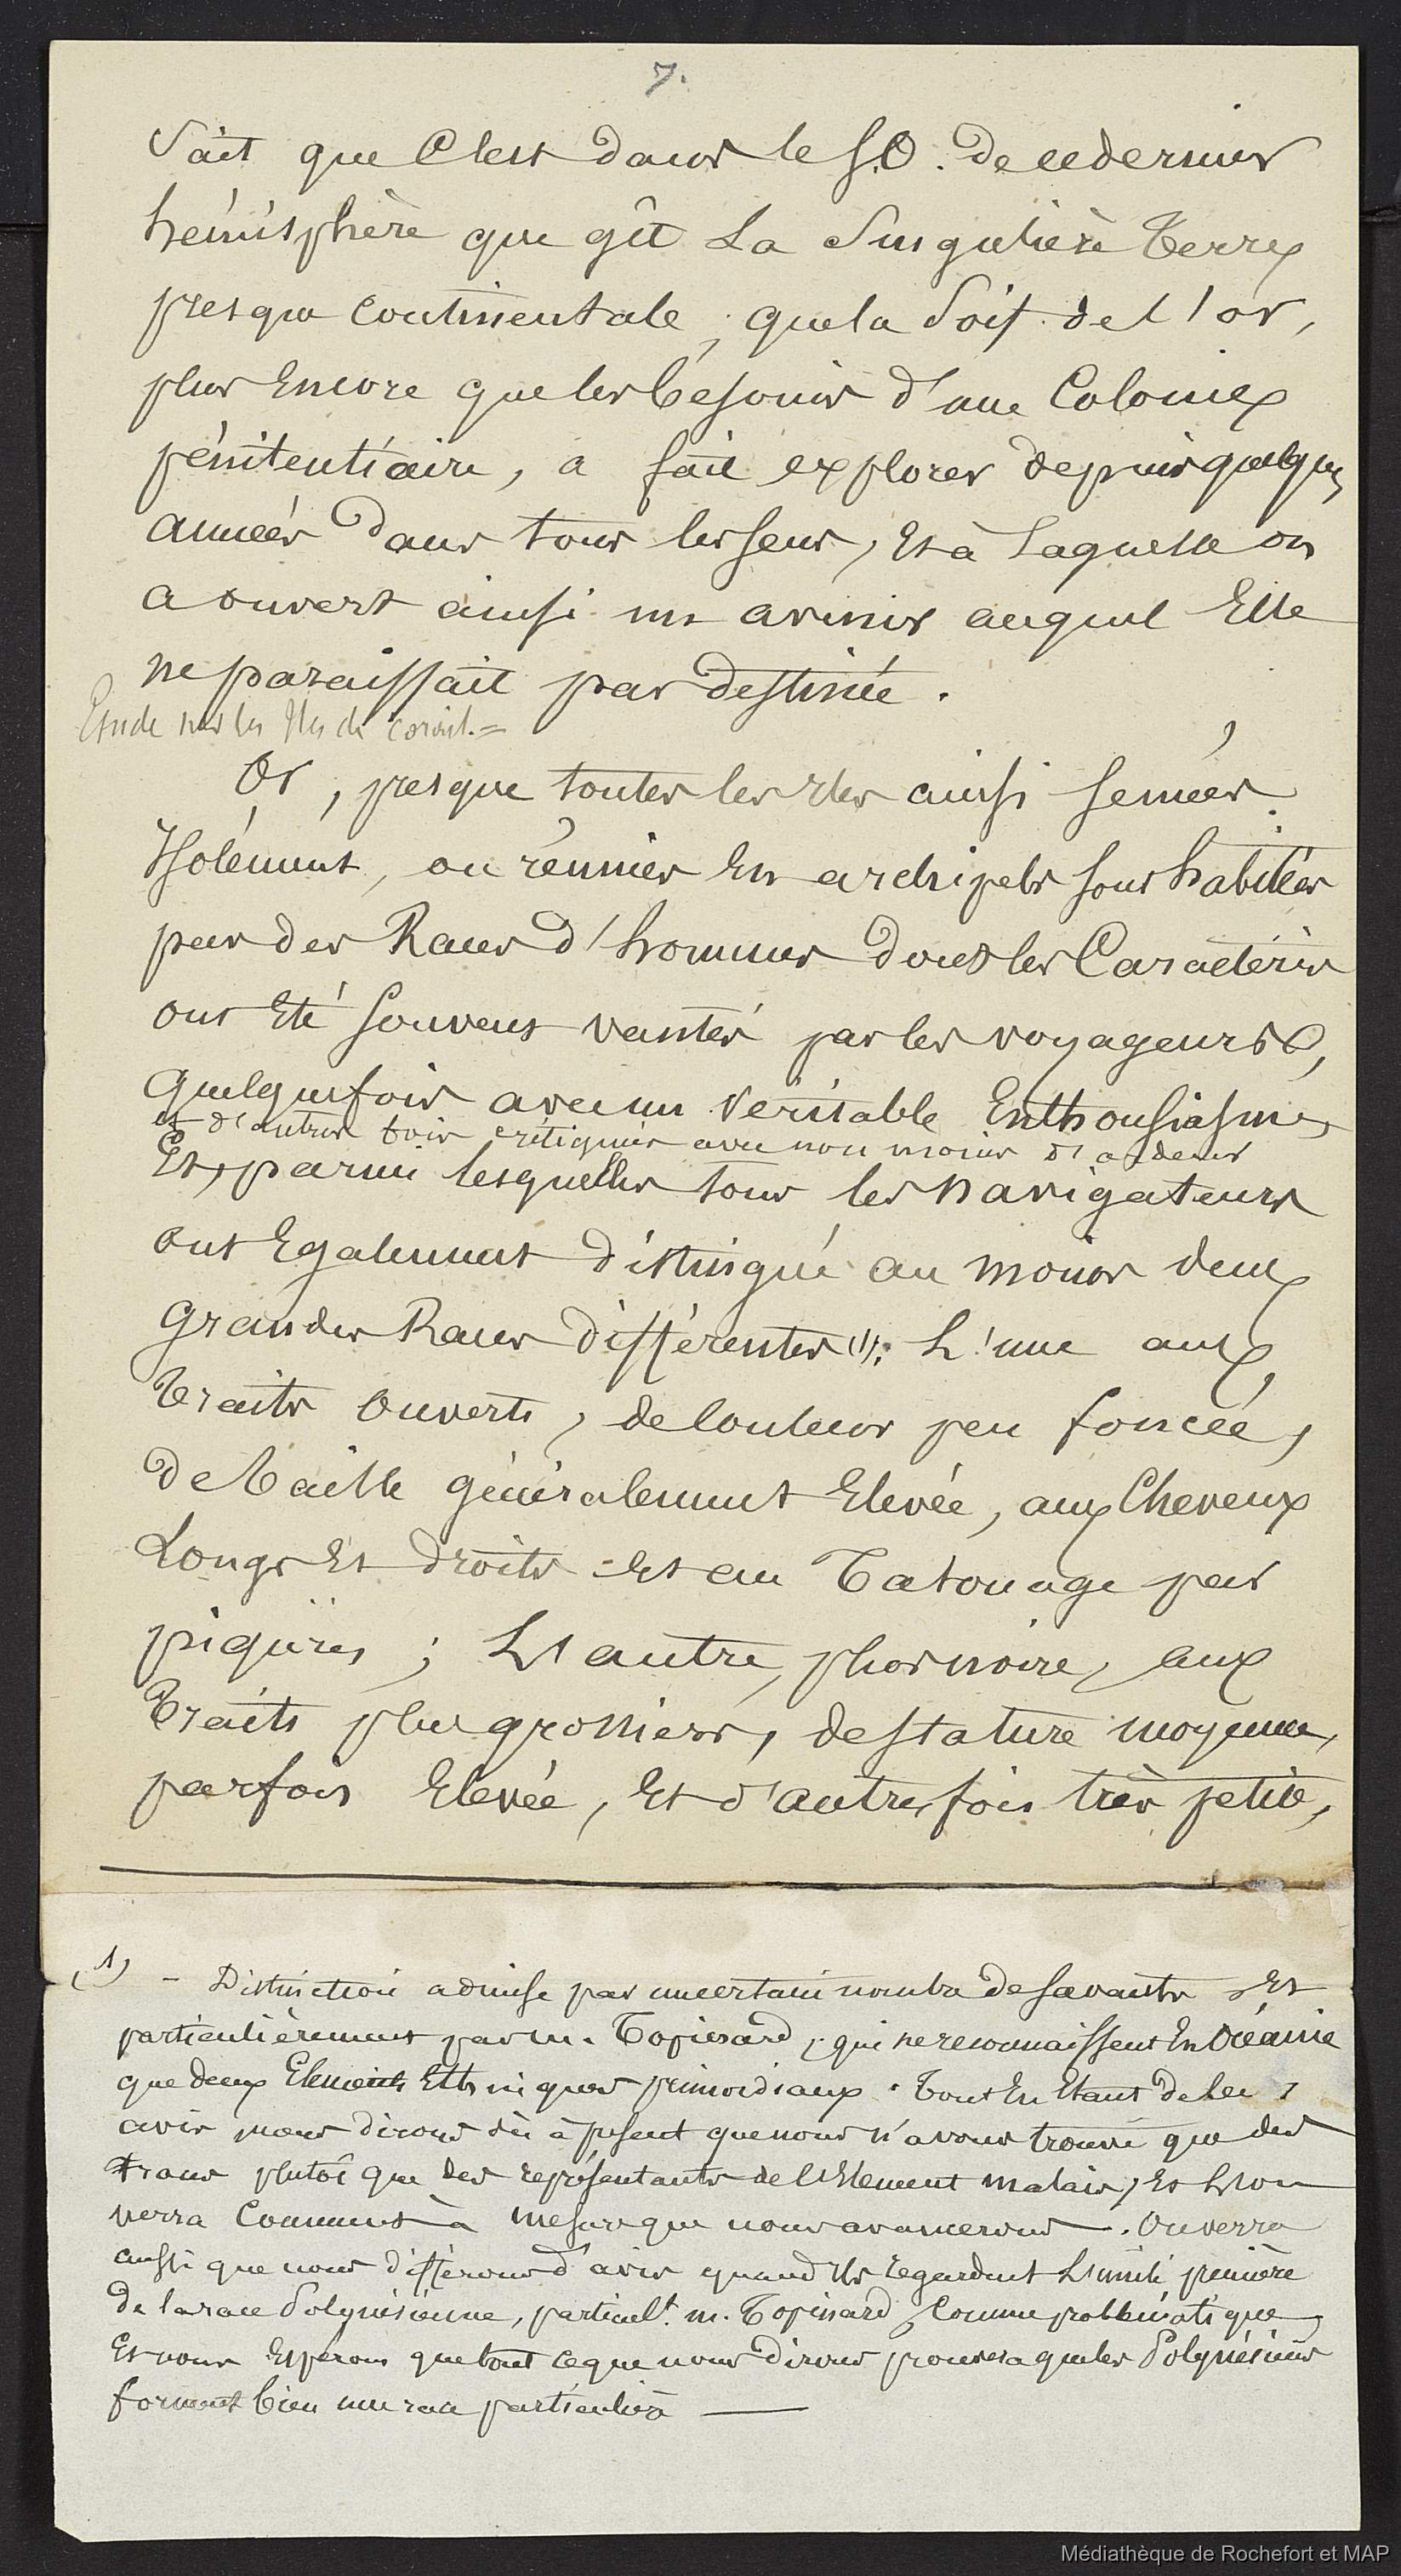 7.
Sait que C'est dans le S.O. de ce dernier
hémisphère que gît La Singulière Terre
presque Continentale, que la Soif de l'or,
plus Encore que les besoins d'une Colonie
pénitentiaire, a fait explorer depuis quelques
années dans tous les sens, Et à laquelle on
a ouvert ainsi un avenir auquel Elle
ne paraissait pas destinée.
Etude sur les Iles de corail. =
Or, presque toutes les Iles ainsi semées
Isolément, ou réunies En archipels sont habitées
par des Races d'hommes dont les Caractères
ont Eté souvent vantés par les voyageurs,
Quelquefois avec un véritable Enthousiasme,
et d'autres fois critiqués avec non moins d'ardeur
Et, parmi lesquelles tous les navigateurs
ont Egalement distingué au moins deux
grandes Races différentes (1); L'une aux
Traits Ouverts, de Couleur peu foncée,
de Taille généralement Elevée, aux Cheveux
Longs Et droits Et au Tatouage par
piqûres; L'autre, plus noire, aux
Traits plus grossiers, de stature moyenne,
parfois Elevée, Et d'autres fois très petite,
(1) - Distinction admise par un certain nombre de savants Et
particulièrement par m. Topinard, qui ne reconnaissent En Océanie
que deux Eléments Ethniques primordiaux. Tout En Etant de leur
avis nous dirons dès à présent que nous n'avons trouvé que des
traces plutôt que des représentants de l'Element malais, Et L'on
verra Comment à mesure que nous avancerons. On verra
aussi que nous différons d'avis quand Ils regardent L'unité première
de la race Polynésienne, particult. m. Topinard, Comme problématique,
Et nous Espérons que tout ce que nous dirons prouvera que les Polynésiens
forment bien une race particulière
Médiathèque de Rochefort et MAP